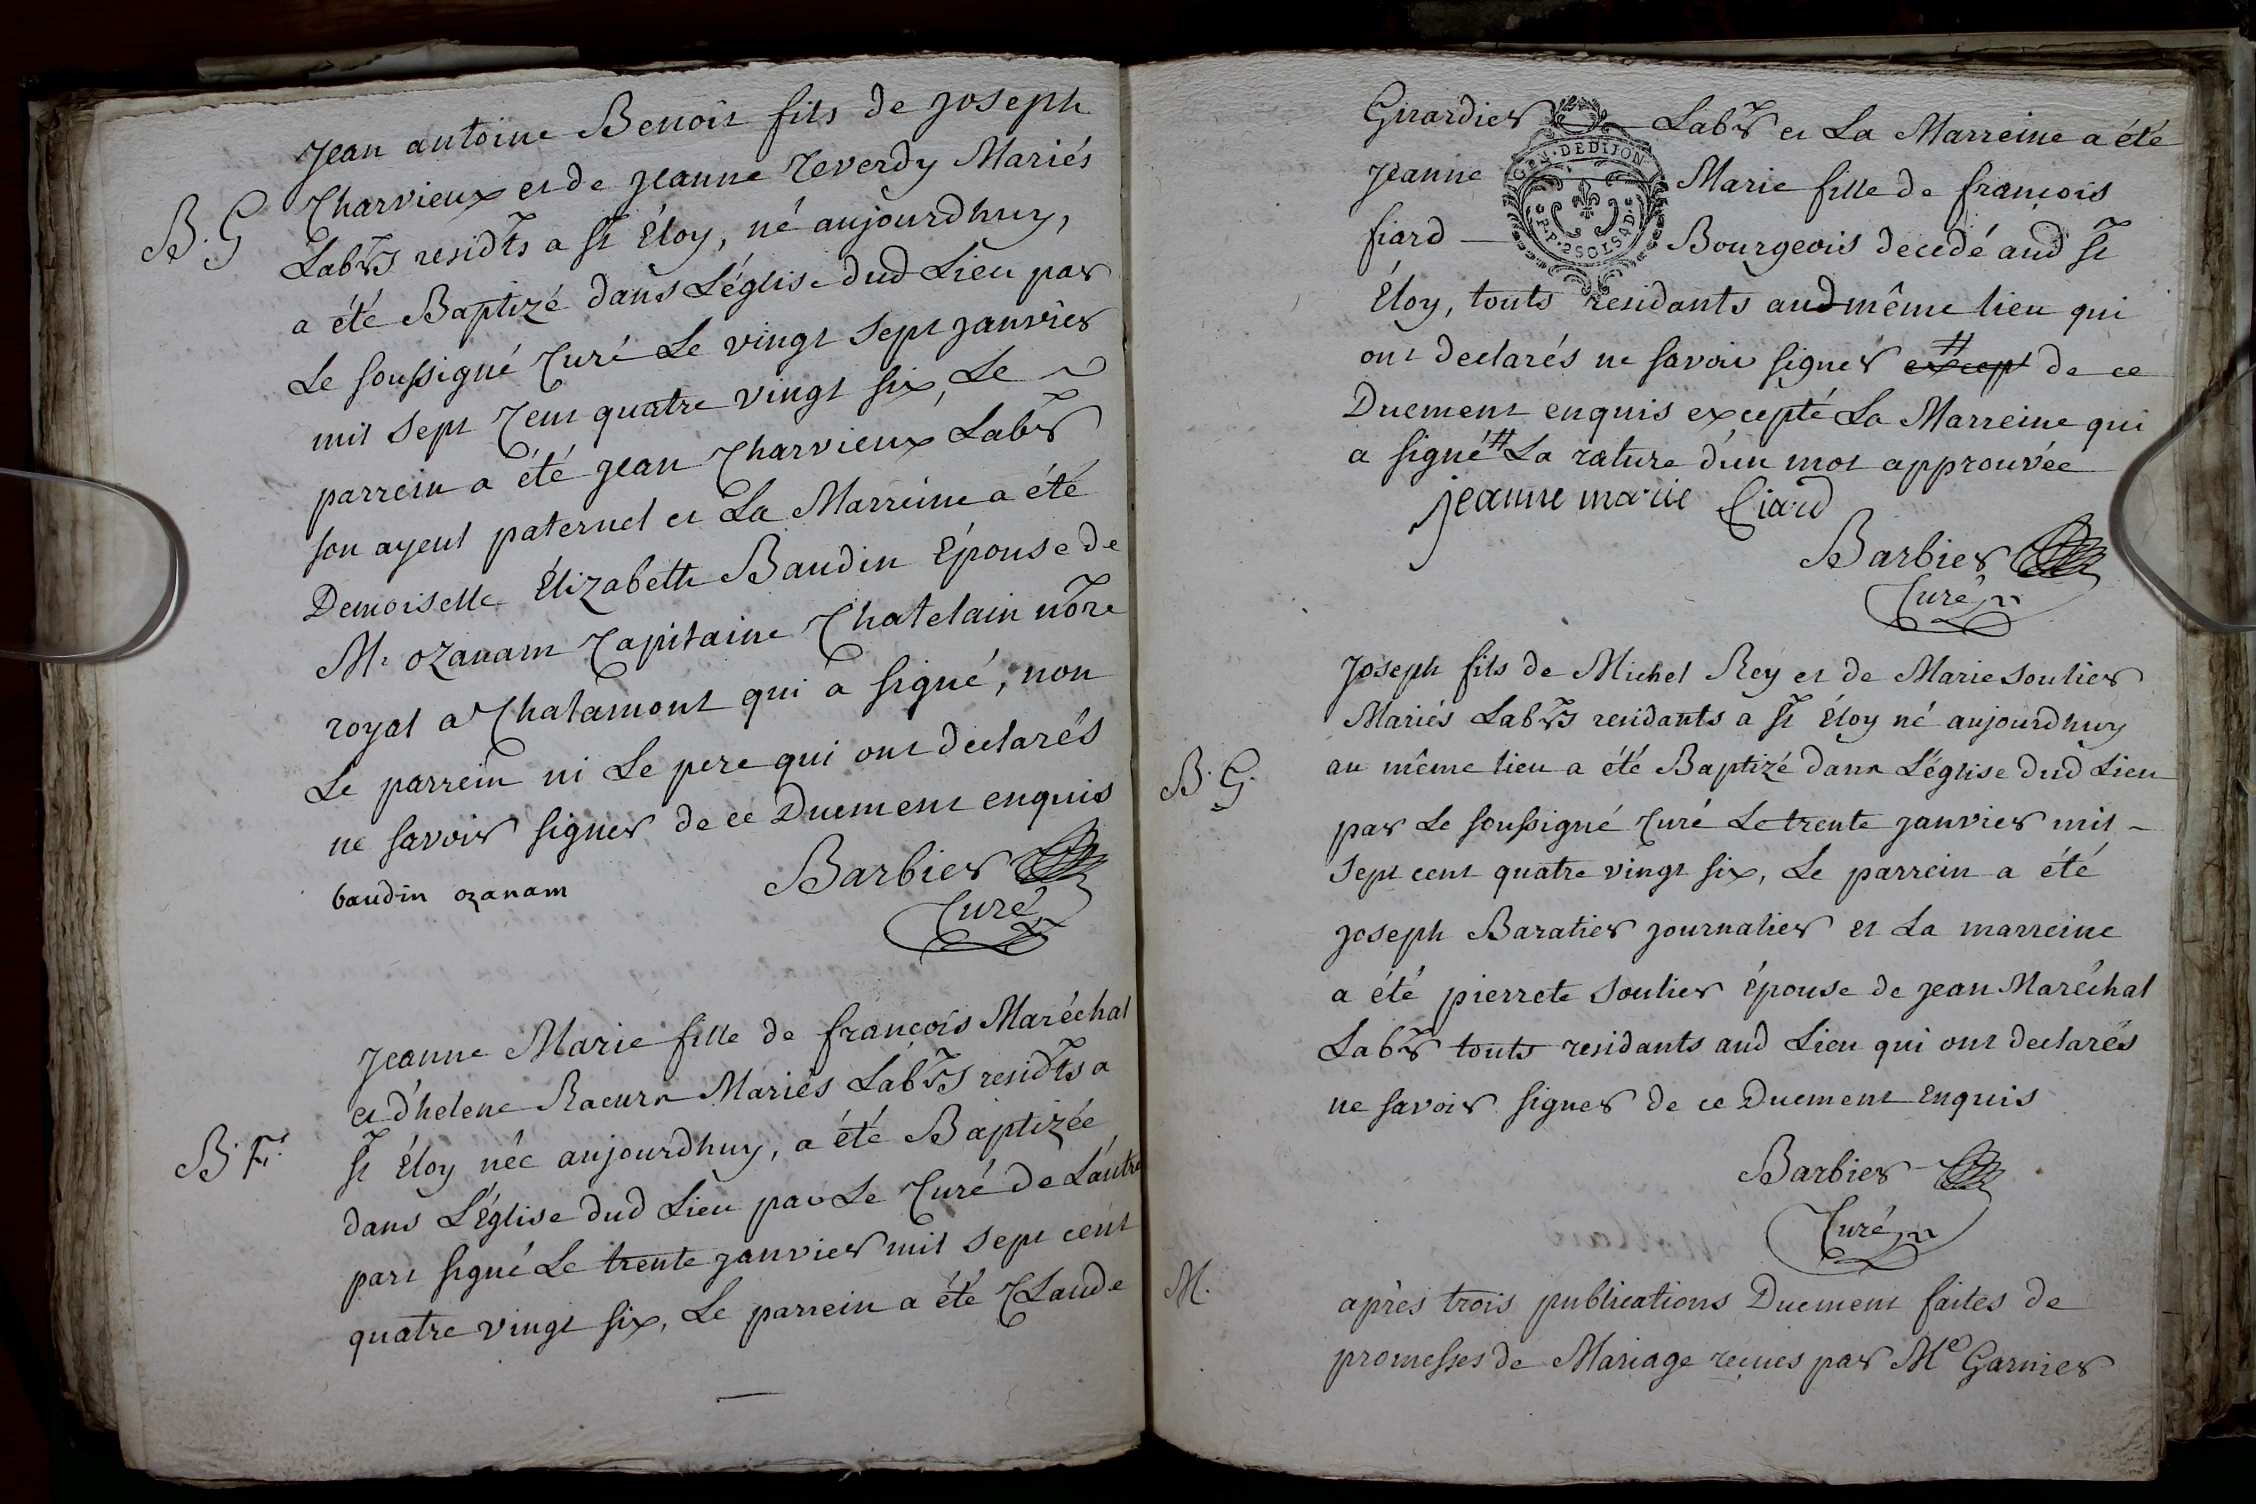 Jean antoine Benoit fils de joseph
Charvieux et de jeanne reverdy Mariés
B. G
Labrs residts a St Éloy, né aujourdhuy,
a été Baptizé dans L'église dud Lieu par
Le soussigné Curé Le vingt sept janvier
mil sept Cent quatre vingt six, Le ~
parrein a été jean Charvieux Labr
son ayeul paternel et La Marreine a été
Demoiselle Élizabeth Baudin Épouse de
Mr ozanam Capitaine Chatelain nore
royal a Chatamont qui a signé, non
Le parrein ni Le pere qui ont declarés
ne savoir signer de ce Duement enquis
baudin ozanam Barbier
Curé
Jeanne Marie fille de françois Maréchal
et d'helene Racurn Mariés Labrs residts a
B. F.
St Éloy née aujourdhuy, a été Baptizée
dans L'Église dud Lieu par Le Curé de L'autre
part signé Le trente janvier mil sept cent
quatre vingt six, Le parrein a été Claude
Girardier Labr et La Marreine a été
GEN. DE DIJON
Jeanne Marie fille de françois
P.P. 2 SOLS 4 D.
fiard Bourgeois decedé aud St
Éloy, touts residants aud même lieu qui
ont declarés ne savoir signer # except de ce
Duement enquis excepté La Marreine qui
a signé # La rature d'un mot approuvée
jeanne marie fiard
Barbier
Curé
Joseph fils de Michel Rey et de Marie soulier
Mariés Labrs residants a St Éloy né aujourdhuy
B. G.
au même lieu a été Baptizé dans L'église dud Lieu
par Le soussigné Curé Le trente janvier mil ~
sept cent quatre vingt six, Le parrein a été
joseph Baratier journalier et La marreine
a été pierrete soulier épouse de jean Maréchal
Labr touts residants aud Lieu qui ont declarés
ne savoir signer de ce Duement enquis
Barbier
Curé
M.
après trois publications Duement faites de
promesses de Mariage reçues par Me Garnier